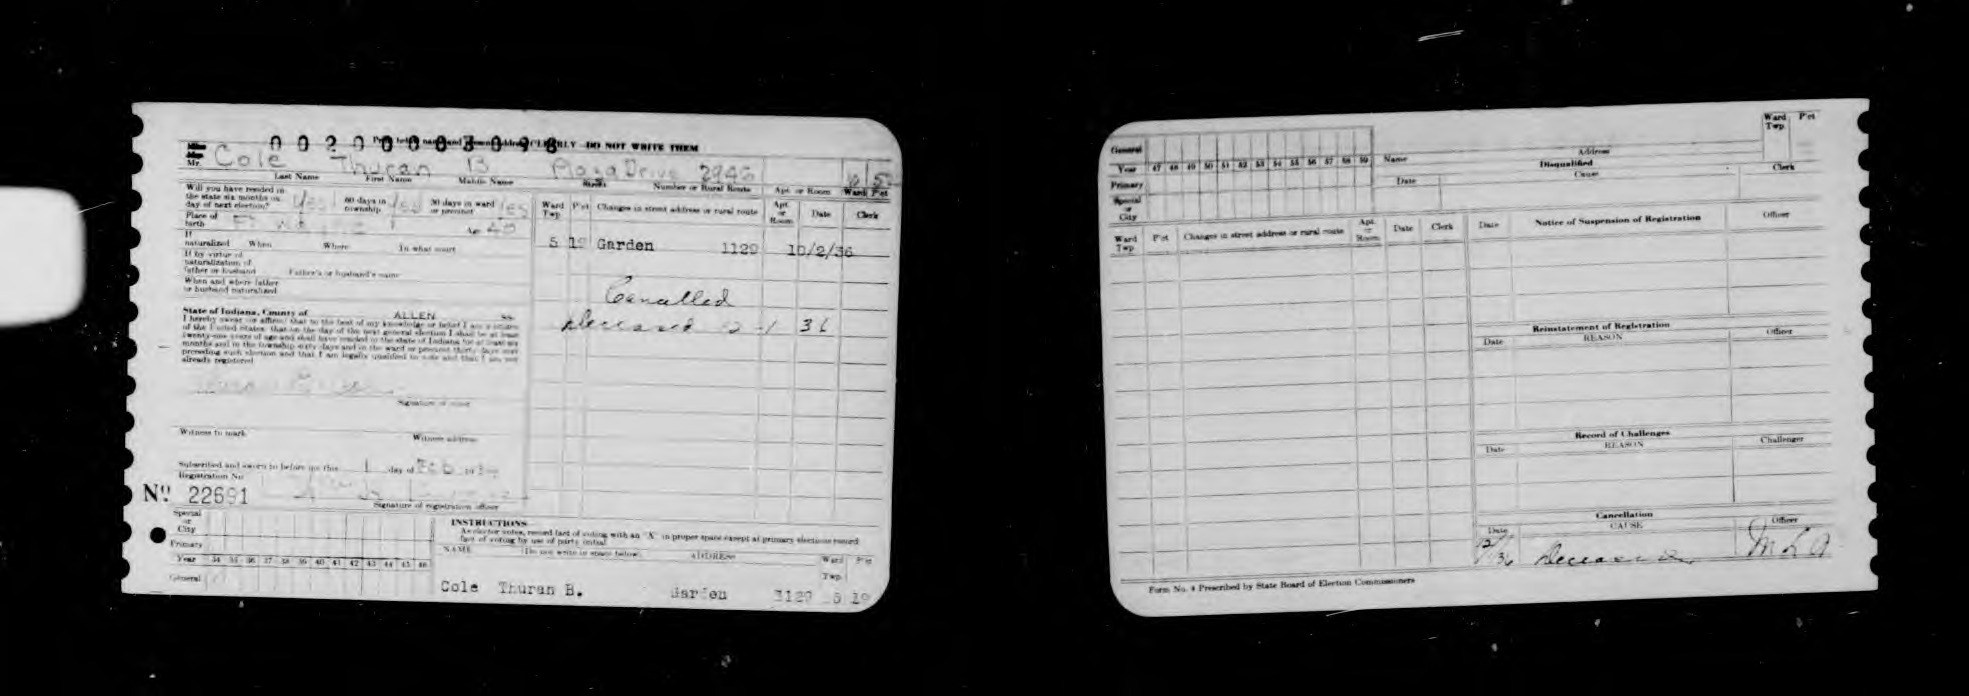 00200003098
Print below name and present address CLEARLY—DO NOT WRITE THEM
Miss
Mrs.
Mr. Cole Thuran B Plaza Drive
Last Name First Name Middle Name Street Number or Rural Route Apt. or Room Ward P'ct
Will you have resided in the state six months on day of next election? Yes 60 days in township Yes 30 days in ward or precinct Yes
Place of birth Age
If naturalized When Where In what court
If by virtue of naturalization of father or husband Father's or husband's name
When and where father or husband naturalized
State of Indiana, County of ALLEN ss.
I hereby swear (or affirm) that to the best of my knowledge or belief I am a citizen
of the United States; that on the day of the next general election I shall be at least
twenty-one years of age and shall have resided in the state of Indiana for at least six
months and in the township sixty days and in the ward or precinct thirty days next
preceding such election and that I am legally qualified to vote and that I am not
already registered
Signature of voter
Witness to mark Witness address
Subscribed and sworn to before me this 1 day of Feb 19
Registration No.
No. 22691
Signature of registration officer
Ward Twp. P'ct Changes in street address or rural route Apt. or Room Date Clerk
5 19 Garden 1129 10/2/36
Cancelled
Deceased 12-1 36
Special or City
Primary
Year 34 35 36 37 38 39 40 41 42 43 44 45 46
General
INSTRUCTIONS
As elector votes, record fact of voting with an "X" in proper space except at primary elections record
fact of voting by use of party initial
NAME (Do not write in space below) ADDRESS Ward Twp. P'ct
Cole Thuran B. Garden 1129 5 19
General
Year 47 48 49 50 51 52 53 54 55 56 57 58 59
Primary
Special or City
Name Address Ward Twp. P'ct
Disqualified
Date Cause Clerk
Ward Twp. P'ct Changes in street address or rural route Apt. or Room Date Clerk
Date Notice of Suspension of Registration Officer
Reinstatement of Registration
Date REASON Officer
Record of Challenges
Date REASON Challenger
Cancellation
Date CAUSE Officer
12/36 Deceased
Form No. 4 Prescribed by State Board of Election Commissioners